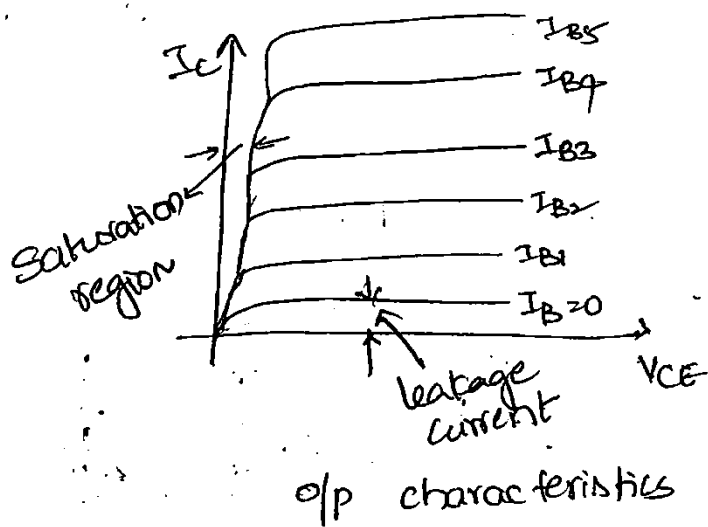 I_C
I_B5
I_B4
I_B3
I_B2
I_B1
I_B=0
Saturation
region
V_CE
leakage
current
o/p characteristics